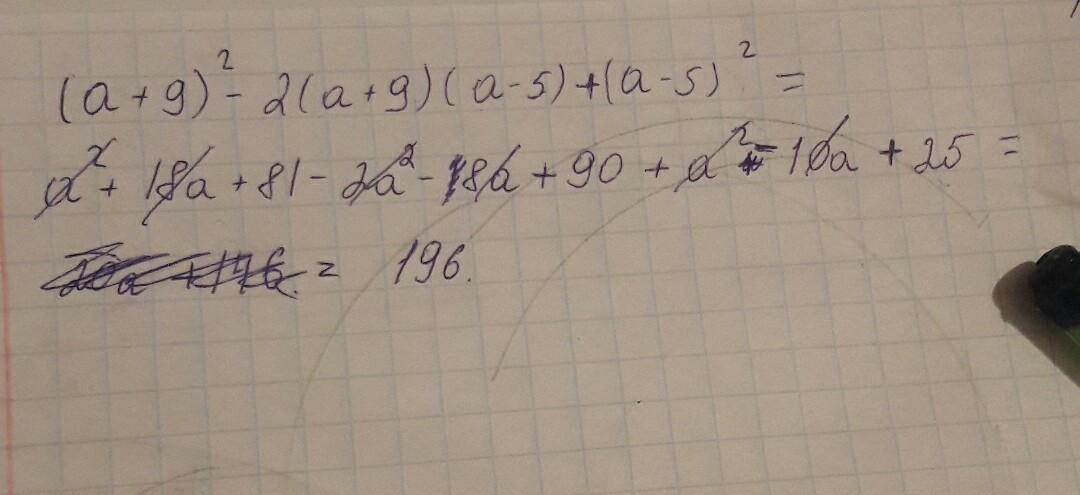 (a+9)² - 2(a+9)(a-5)+(a-5)² =
a² + 18a + 81 - 2a² - 8a + 90 + a² - 10a + 25 =
= 196.